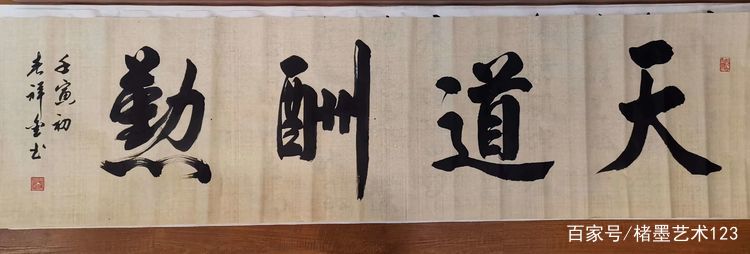 天道酬勤
壬寅初
春祥金书
百家号/楮墨艺术123